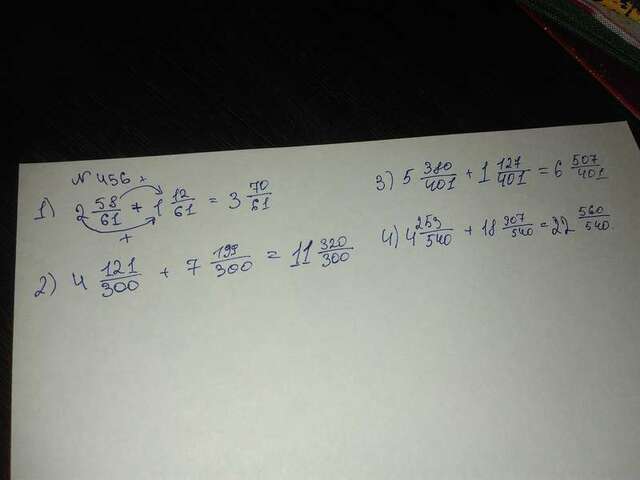 № 456.
1) 2 58/61 + 1 12/61 = 3 70/61
+
2) 4 121/300 + 7 199/300 = 11 320/300
3) 5 380/401 + 1 127/401 = 6 507/401
4) 4 253/540 + 18 307/540 = 22 560/540.